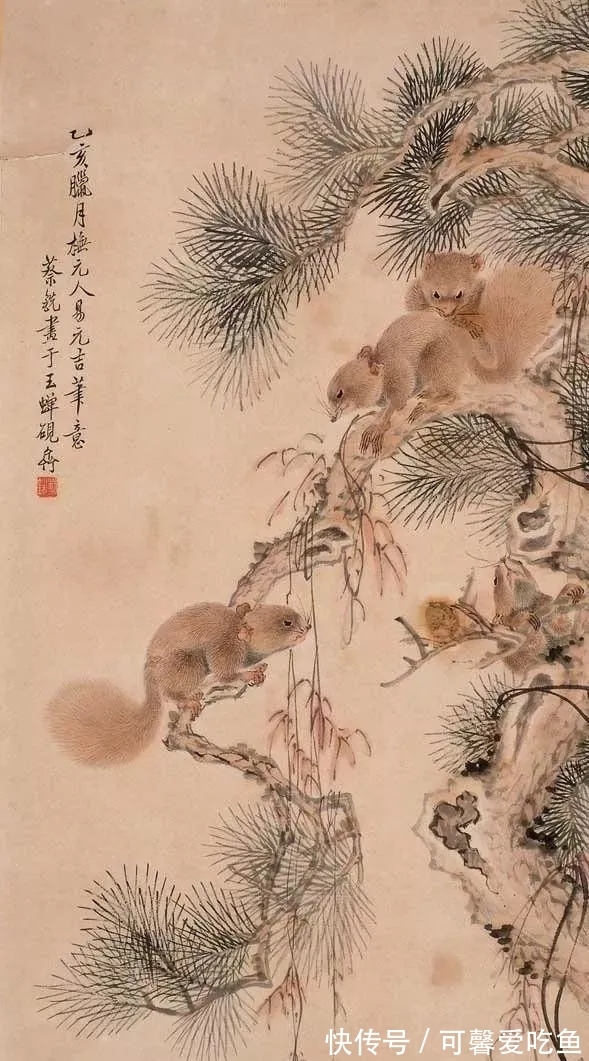 乙亥臘月橅元人易元吉筆意
蔡銑畫于玉蟬硯齋
快传号 / 可馨爱吃鱼